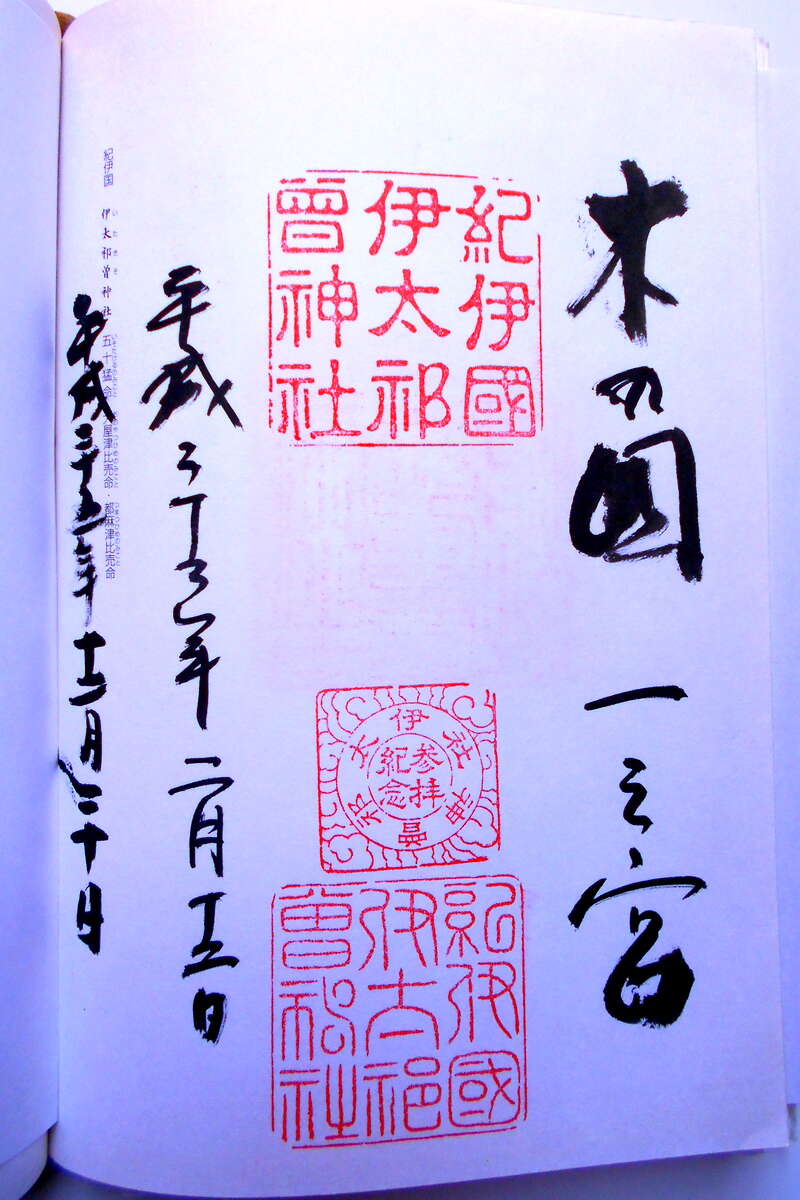 木の国 一之宮
紀伊國
伊太祁
曾神社
伊太祁曽神社
参拝
紀念
紀伊國
伊太祁
曽神社
平成二十年二月十五日
紀伊国 伊太祁曽神社 五十猛命 屋津比売命・都麻津比売命
平成二十五年十二月二十日